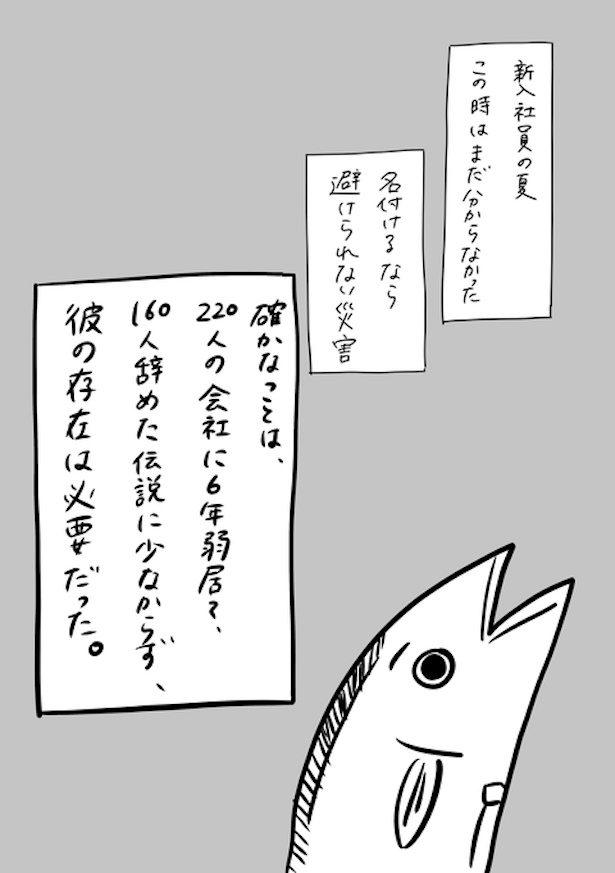 新入社員の夏
この時はまだ分からなかった
名付けるなら
避けられない災害
確かなことは、
220人の会社に6年弱居て、
160人辞めた伝説に少なからず、
彼の存在は必要だった。